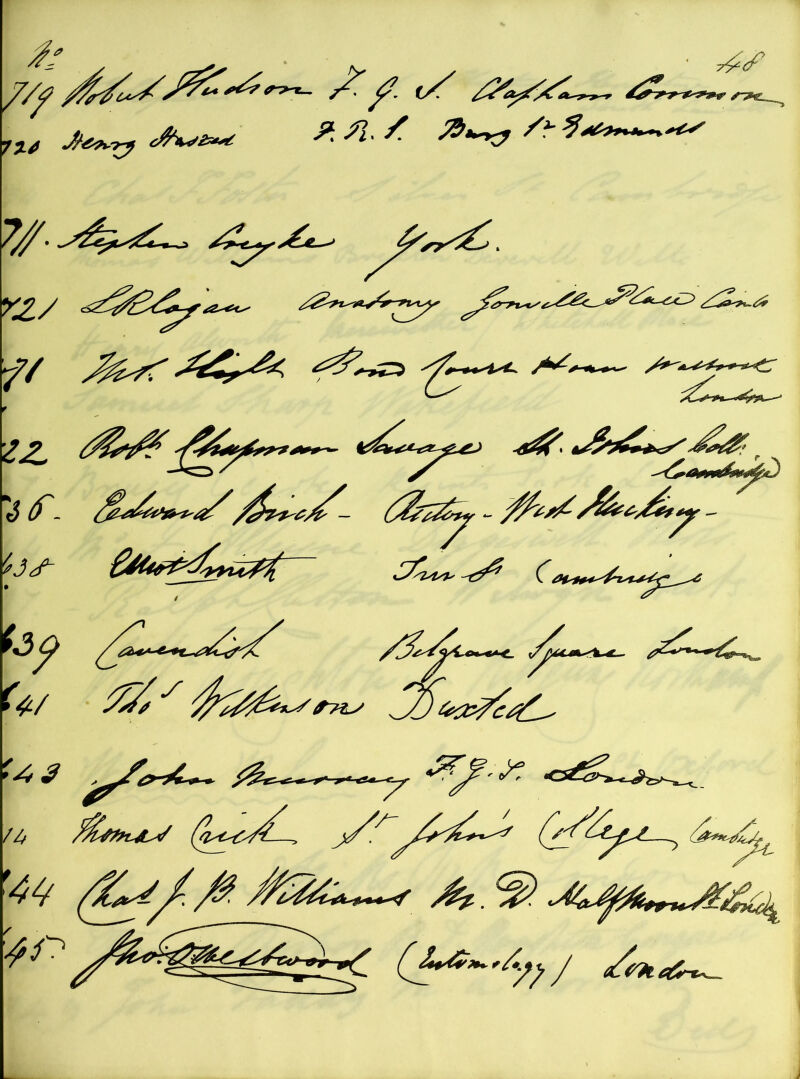 No
48
719 Robert Hudson F. G. S. Clapham Common
720 Henry Hasted F. R. S. Bury St Edmunds
711. Stephen Creyke York.
721 Anatomy Gonville Place Camb
71 Wm. Bond Court House Walbrook
London
22 Robt. Chapman Savage St. Johns Coll:
Cambridge
36 - Edward Birch - Rectory - West Hackney -
638 Elliot Smith Cambridge
639 Cavendish Belgrave Square London
641 Thos Wilkinson
643 John Murray F. G. S. London.
14 Thomas Crick St. John's College, Cambridge
644 Chas J. B. Williams M. D. Half Moon St London
645. Jno: O. Westwood (Entomology) London